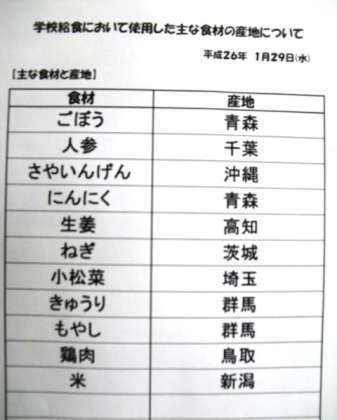 学校給食において使用した主な食材の産地について
平成26年 1月29日(水)
[主な食材と産地]
食材 産地
ごぼう 青森
人参 千葉
さやいんげん 沖縄
にんにく 青森
生姜 高知
ねぎ 茨城
小松菜 埼玉
きゅうり 群馬
もやし 群馬
鶏肉 鳥取
米 新潟